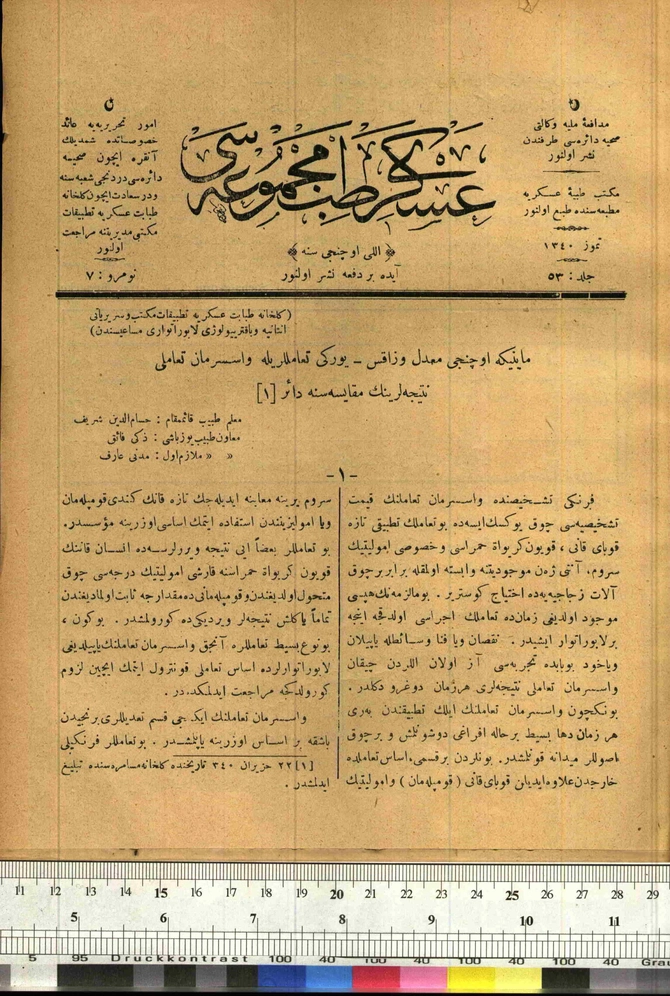 مدافعهٔ ملیه وکالتی
صحیه دائره‌سی طرفندن
نشر اولنور
مکتب طبیهٔ عسکریه
مطبعه‌سنده طبع اولنور
تموز ١٣٤٠
جلد : ٥٣
عسکری طب مجموعه‌سی
﴿ اللی اوچنجی سنه ﴾
آیده بر دفعه نشر اولنور
امور تحریریه‌یه عائد
خصوصاتده شمدیلك
آنقره ایچون صحیه
دائره‌سی دردنجی شعبه‌سنه
ودرسعادت ایچون کلخانه
طبابت عسکریه تطبیقات
مکتبی مدیریتنه مراجعت
اولنور
نومرو : ٧
(کلخانه طبابت عسکریه تطبیقات مکتب وسریریاتی
انتانیه وباقتریولوژی لابوراتواری مساعیسندن)
ماینیکه اوچنجی معدل وزاقس ــ یورکی تعامللریله واسسرمان تعاملی
نتیجه‌لرینك مقایسه‌سنه دائر [١]
معلم طبیب قائممقام : حسام‌الدین شریف
معاون طبیب یوزباشی : ذکی فائق
» » ملازم اول : مدنی عارف
ــ ١ ــ
فرنکی تشخیصنده واسسرمان تعاملنك قیمت
تشخیصیه‌سی چوق یوکسك ایسه‌ده بو تعاملك تطبیقی تازه
قوبای قانی ، قویون کریواۀ حمراسی وخصوصی امولیتیك
سروم، آنتی ژەن موجودیتنه وابسته اولمقله برابر برچوق
آلات زجاجیه‌یه‌ده احتیاج کوستریر . بو مالزمه‌نك هپسی
موجود اولدیغی زمان‌ده تعاملك اجراسی اولدقجه اینجه
برلابوراتوار ایشیدر . نقصان ویا فنا وسائطله یاپیلان
ویاخود بوبابده تجربه‌سی آز اولان اللردن چیقان
واسسرمان تعاملی نتیجه‌لری هرزمان دوغرو دکلدر .
بونکچون واسسرمان تعاملنك ایلك تطبیقندن بری
هر زمان دها بسیط برحاله افراغی دوشونلمش و برچوق
اصوللر میدانه قونلشدر. بونلردن برقسمی، اساس تعامله
خارجدن علاوه ایدیلن قوبای قانی ( قومپله‌مان ) وامولیتیك
سروم یرینه معاینه ایدیله‌جك تازه قانك کندی قومپله‌مان
ویا امولیزینندن استفاده ایتمك اساسی اوزرینه مؤسسدر.
بو تعامللر بعضاً ایی نتیجه ویررلرسه‌ده انسان قاننك
قویون کریواۀ حمراسنه قارشی امولیتیك درجه‌سی چوق
متحول اولدیغندن وقومپله‌مانی‌ده مقدارجه ثابت اولمادیغندن
تماماً یاکلش نتیجه‌لر ویردیکی‌ده کورولمشدر . بوکون ،
بونوع بسیط تعامللره آنجق واسسرمان تعاملنك یاپیلدیغی
لابوراتوارلرده اساس تعاملی قونترول ایتمك ایچین لزوم
کورولدکجه مراجعت ایدلمکده‌در .
واسسرمان تعاملنك ایکنجی قسم تعدیللری برنجیدن
باشقه بر اساس اوزرینه یاپلمشدر . بو تعامللر فرنکیلی
[١] ٢٢ حزیران ٣٤٠ تاریخنده کلخانه مسامره‌سنده تبلیغ
ایدلمشدر .
11 12 13 14 15 16 17 18 19 20 21 22 23 24 25 26 27 28 29
5 6 7 8 9 10 11
5 95 Druckkontrast 100 40 100 40 100 40 100 40 100 40 Grau